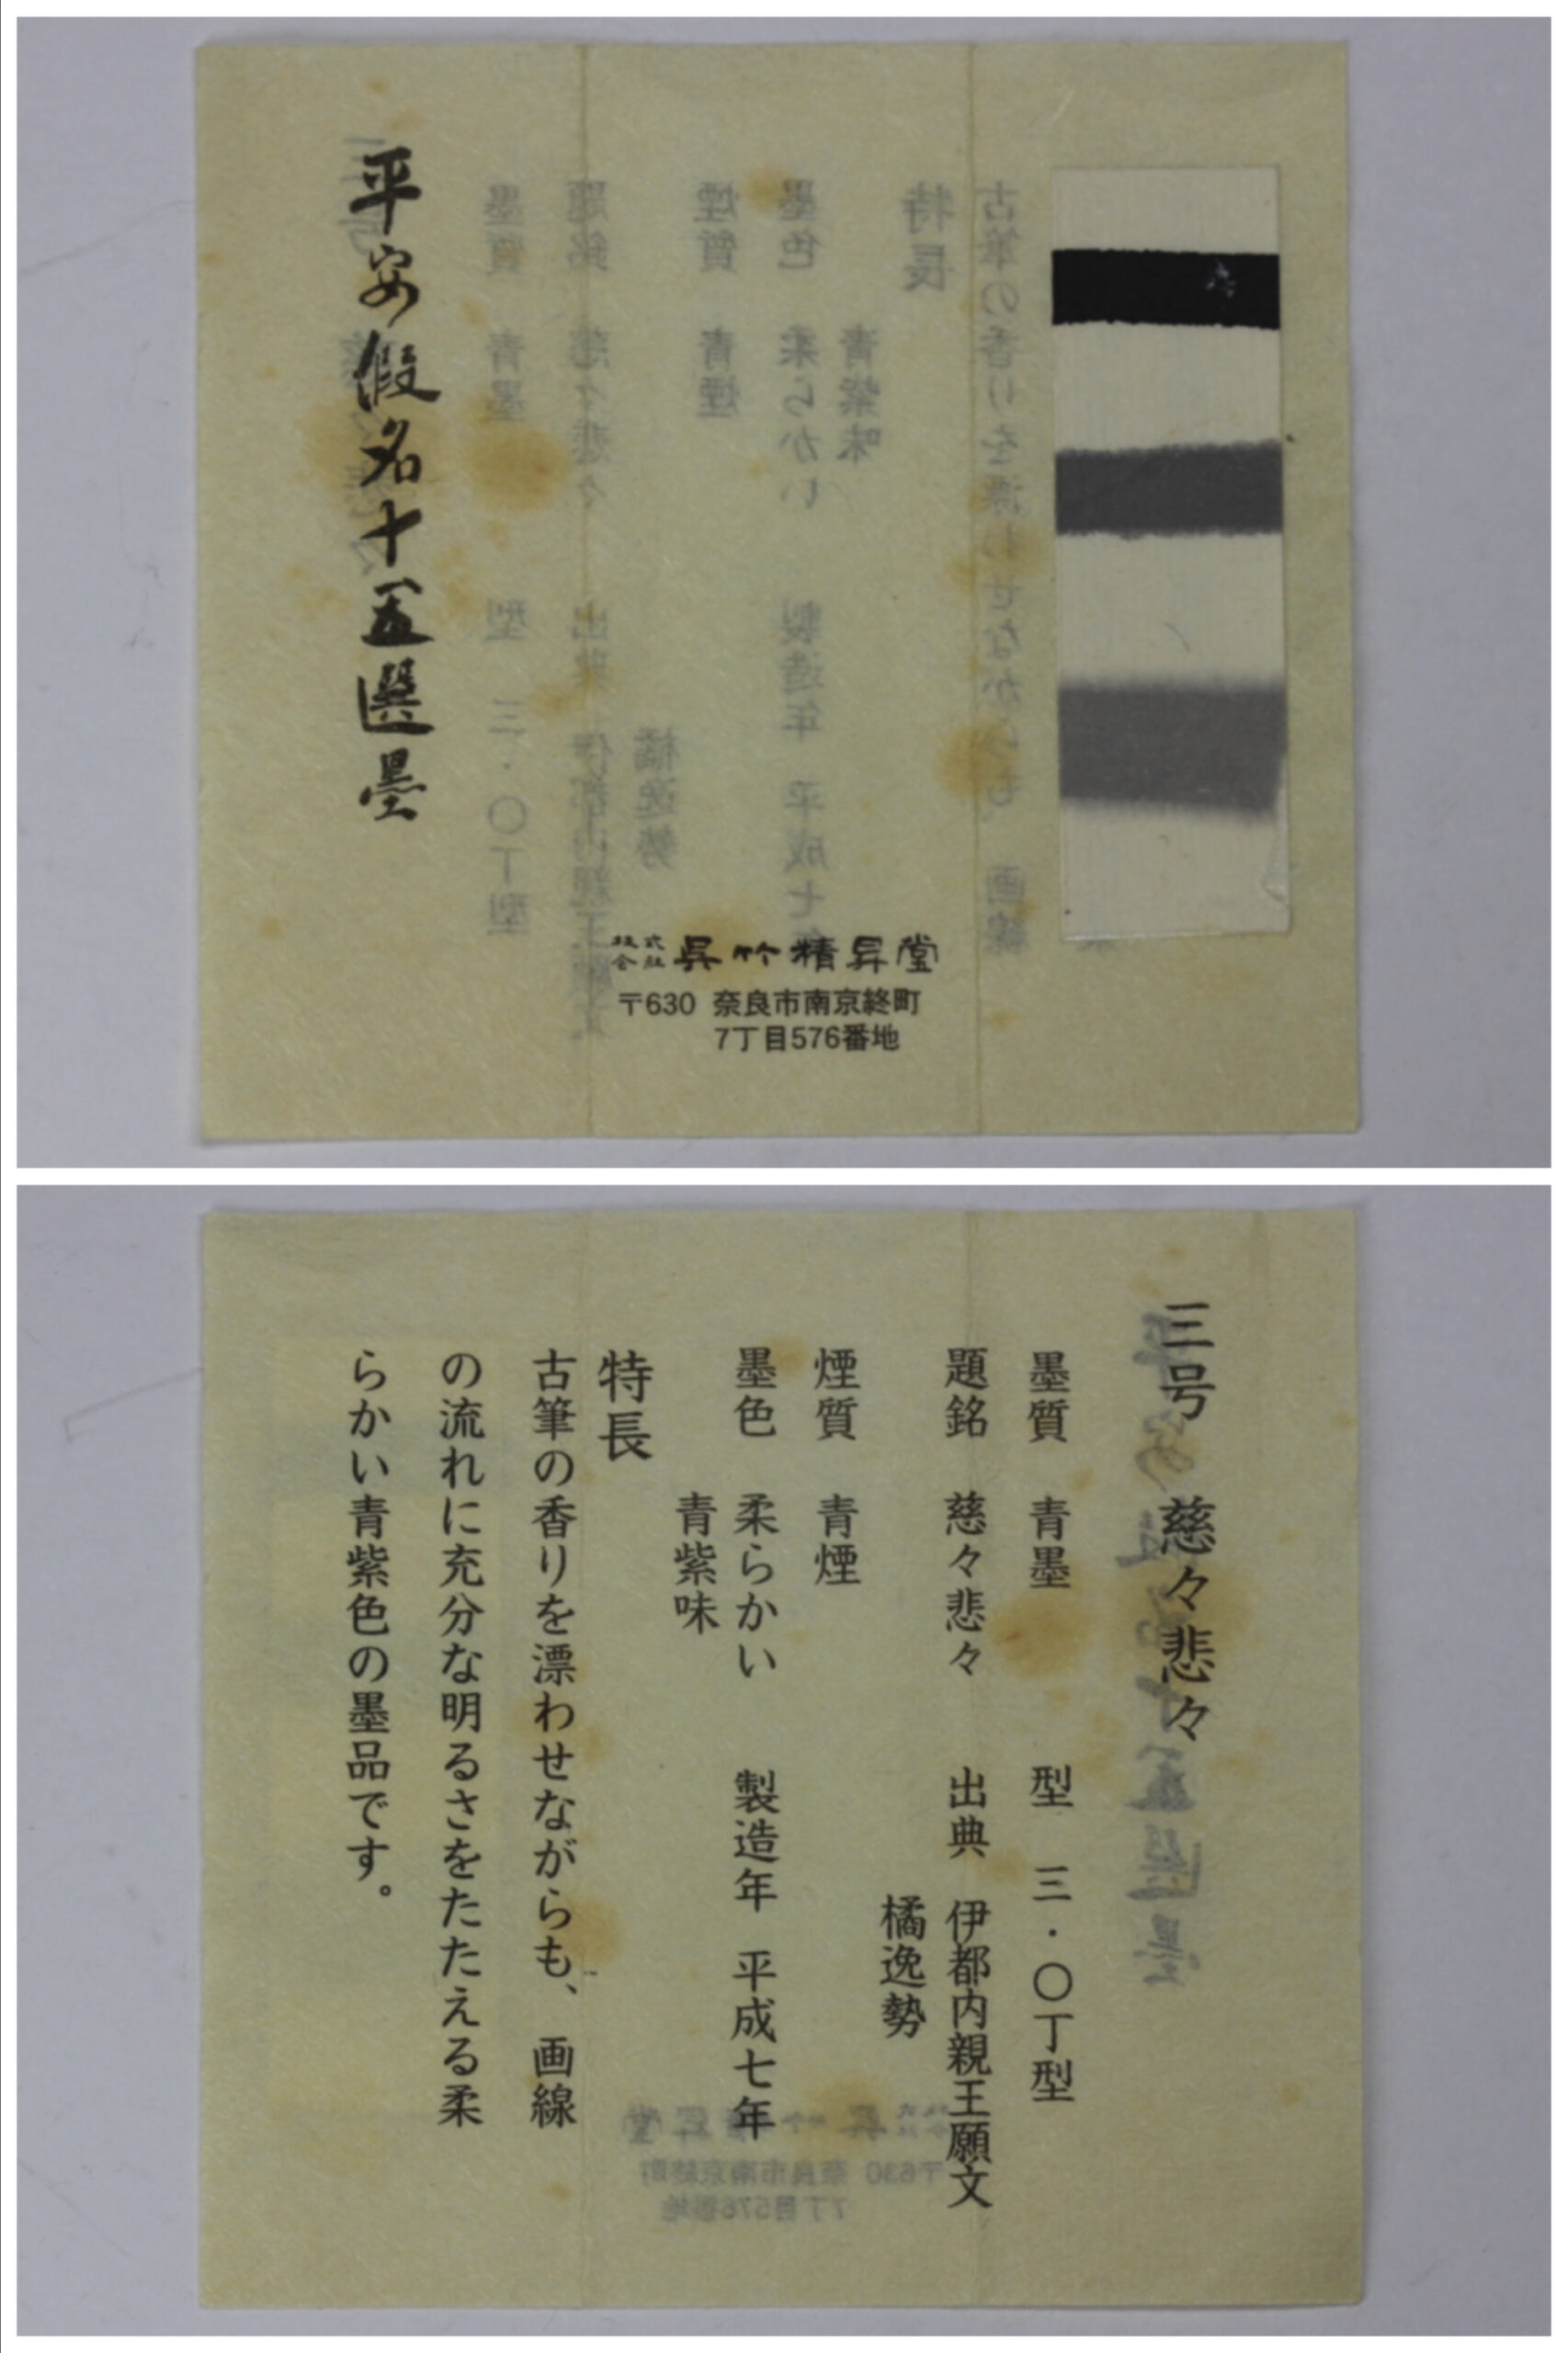 平安假名十五選墨
株式会社 呉竹精昇堂
〒630 奈良市南京終町
7丁目576番地
三号 慈々悲々
墨質 青墨 型 三・〇丁型
題銘 慈々悲々 出典 伊都内親王願文
橘逸勢
煙質 青煙
墨色 柔らかい 製造年 平成七年
青紫味
特長
古筆の香りを漂わせながらも、画線
の流れに充分な明るさをたたえる柔
らかい青紫色の墨品です。